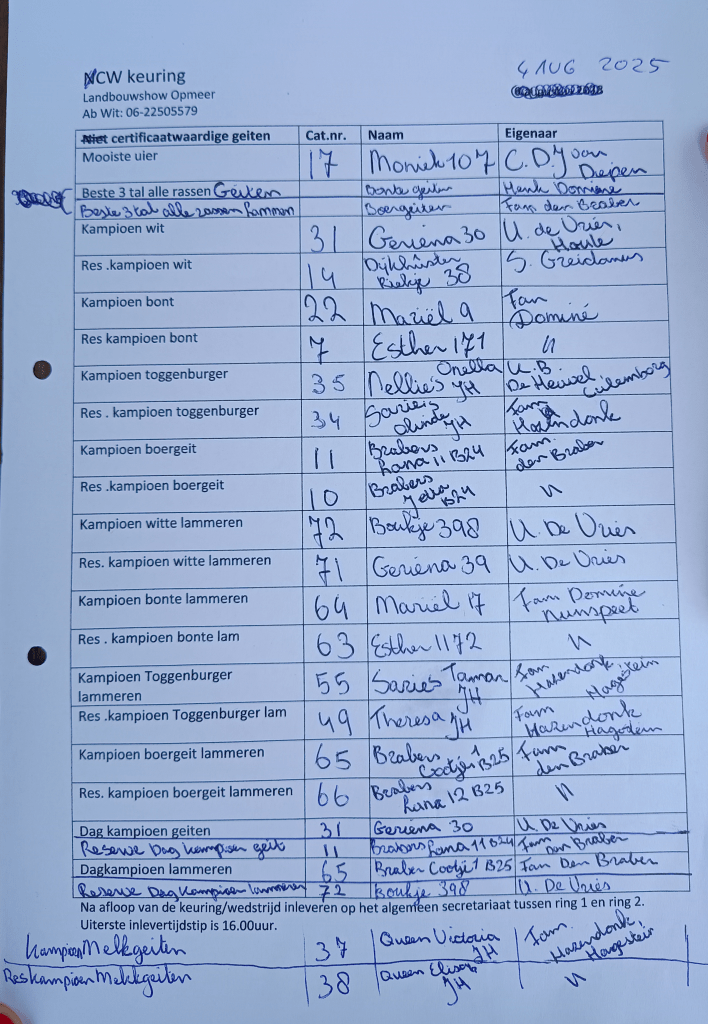 NCW keuring
4 AUG 2025
Landbouwshow Opmeer
Ab Wit: 06-22505579
Niet certificaatwaardige geiten Cat.nr. Naam Eigenaar
Mooiste uier 17 Moniek 107 C.D.J van Diepen
Beste 3 tal alle rassen Geiten Bonte geiten Henk Dominé
Beste 3 tal alle rassen Lammen Boergeiten Fam den Braber
Kampioen wit 31 Geriena 30 U. de Vries,
Res .kampioen wit 14 Dijkhúster Riekje 38 S. Greidanus
Kampioen bont 22 Mariël 9 Fam Dominé
Res kampioen bont 7 Esther 171 "
Kampioen toggenburger 35 Nellie's Onella JH U.B. De Heuvel, Culemborg
Res . kampioen toggenburger 34 Saries JH Fam Hazendonk
Kampioen boergeit 11 Brabers Lana 11 B24 Fam. den Braber
Res .kampioen boergeit 10 Brabers B24 "
Kampioen witte lammeren 72 Boukje 398 U. De Vries
Res. kampioen witte lammeren 71 Geriena 39 U. De Vries
Kampioen bonte lammeren 64 Mariël 17 Fam Domine Nunspeet
Res . kampioen bonte lam 63 Esther 1172 "
Kampioen Toggenburger
lammeren 55 Saries Tamar JH Fam Hazendonk, Hagestein
Res .kampioen Toggenburger lam 49 Theresa JH Fam Hazendonk Hagestein
Kampioen boergeit lammeren 65 Brabers Cootje 1 B25 Fam den Braber
Res. kampioen boergeit lammeren 66 Brabers Lana 12 B25 "
Dag kampioen geiten 31 Geriena 30 U. De Vries
Reserve Dag kampioen geit 11 Brabers Lana 11 B24 Fam den Braber
Dagkampioen lammeren 65 Braber Cootje 1 B25 Fam Den Braber
Reserve Dagkampioen lammeren 72 Boukje 398 U. De Vries
Na afloop van de keuring/wedstrijd inleveren op het algemeen secretariaat tussen ring 1 en ring 2.
Uiterste inlevertijdstip is 16.00uur.
Kampioen Melkgeiten 37 Queen Victoria JH Fam. Hazendonk, Hagestein
Res kampioen Melkgeiten 38 Queen JH "